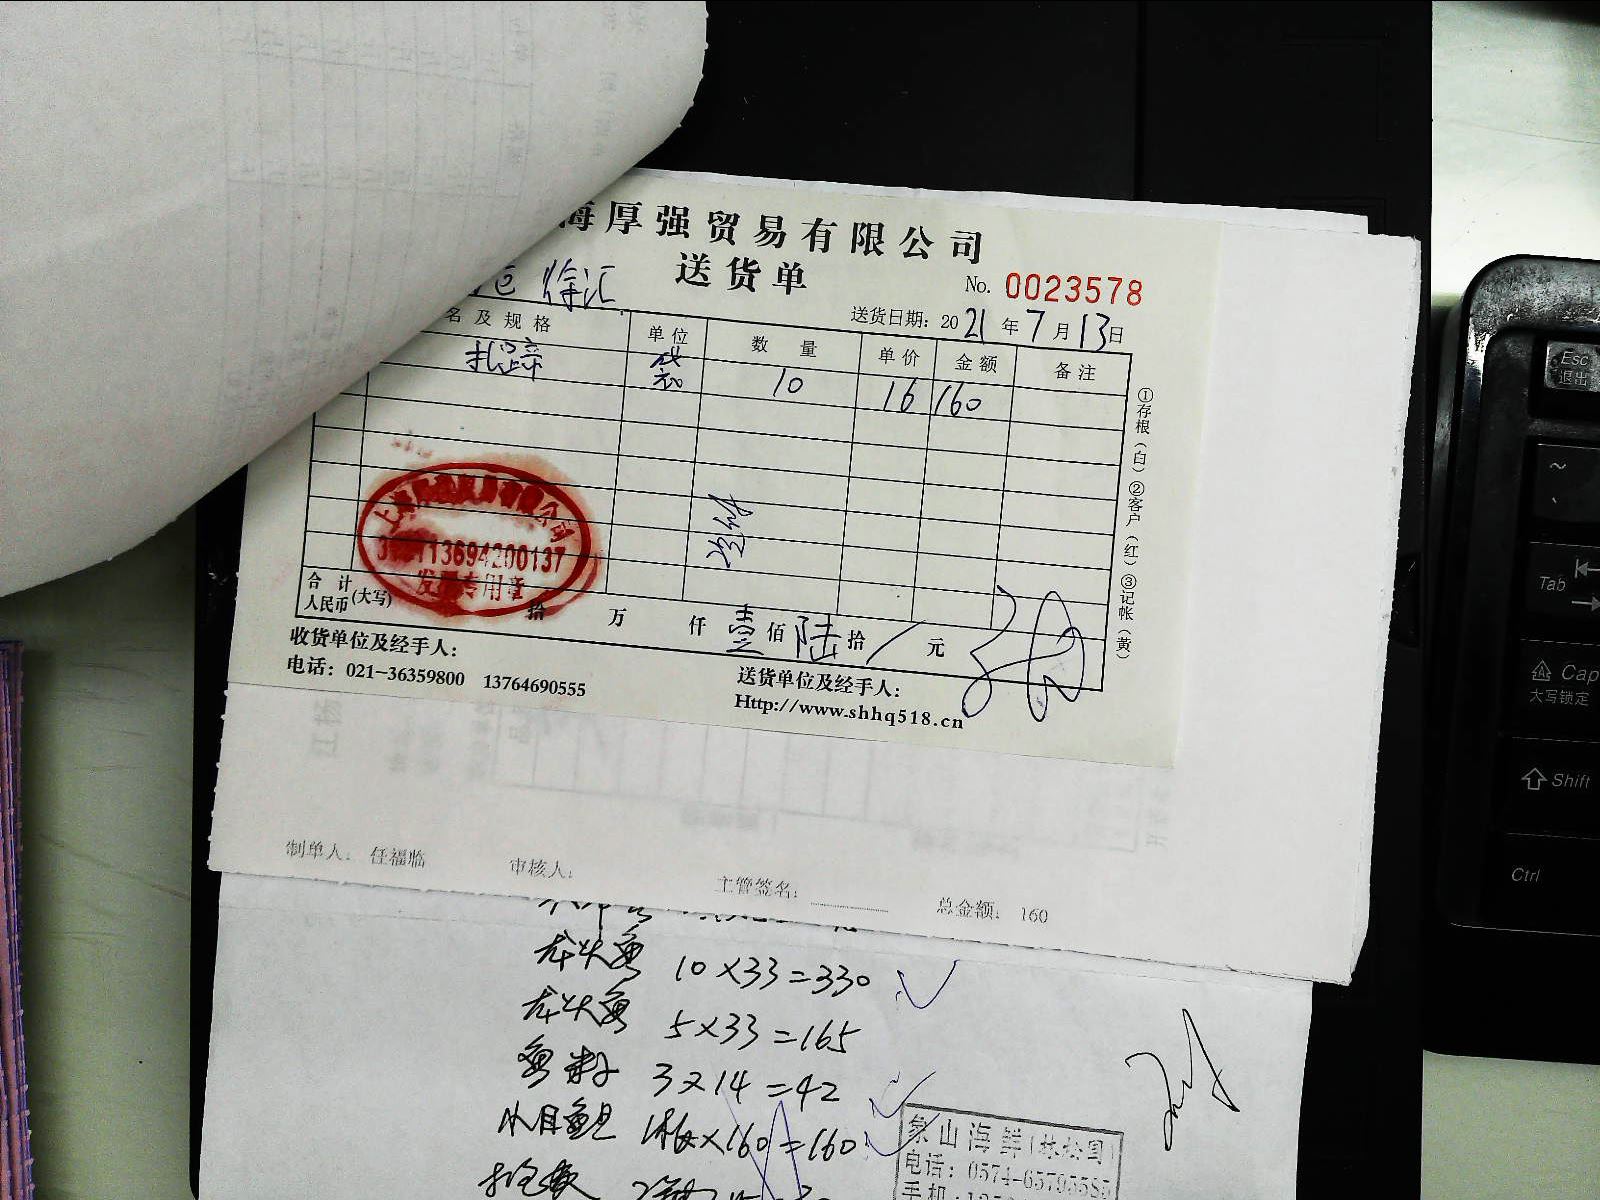 海厚强贸易有限公司
送货单
No. 0023578
徐汇
送货日期: 2021年7月13日
名及规格 单位 数量 单价 金额 备注
扎蹄 袋 10 16 160
①存根(白)②客户(红)③记帐(黄)
13694200137
发票专用章
合计人民币(大写) 拾 万 仟 壹佰 陆拾 / 元
收货单位及经手人:
送货单位及经手人:
电话: 021-36359800 13764690555
Http://www.shhq518.cn
制单人: 任福临 审核人: 主管签名: 总金额: 160
龙头鱼 10×33=330
龙头鱼 5×33=165
3×14=42
×160=160
象山海鲜
电话: 0574-65795585
手机:
Esc
退出
~
Tab
Cap
大写锁定
Shift
Ctrl